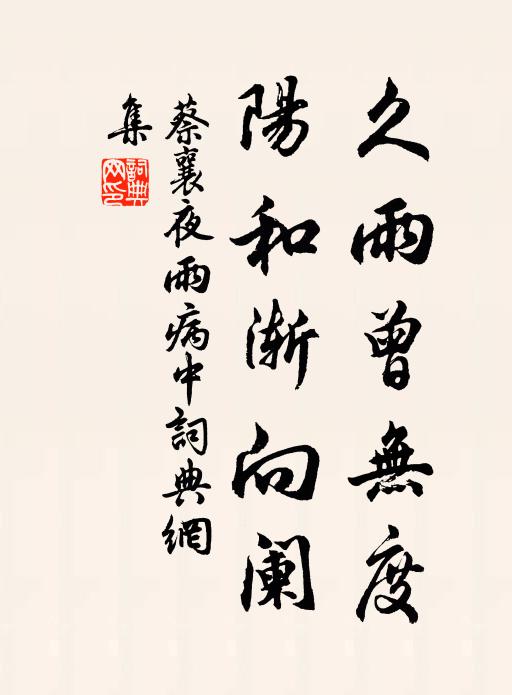 久雨曾無度
陽和漸向阑
蔡襄夜雨病中詞典網
集
詞典網印